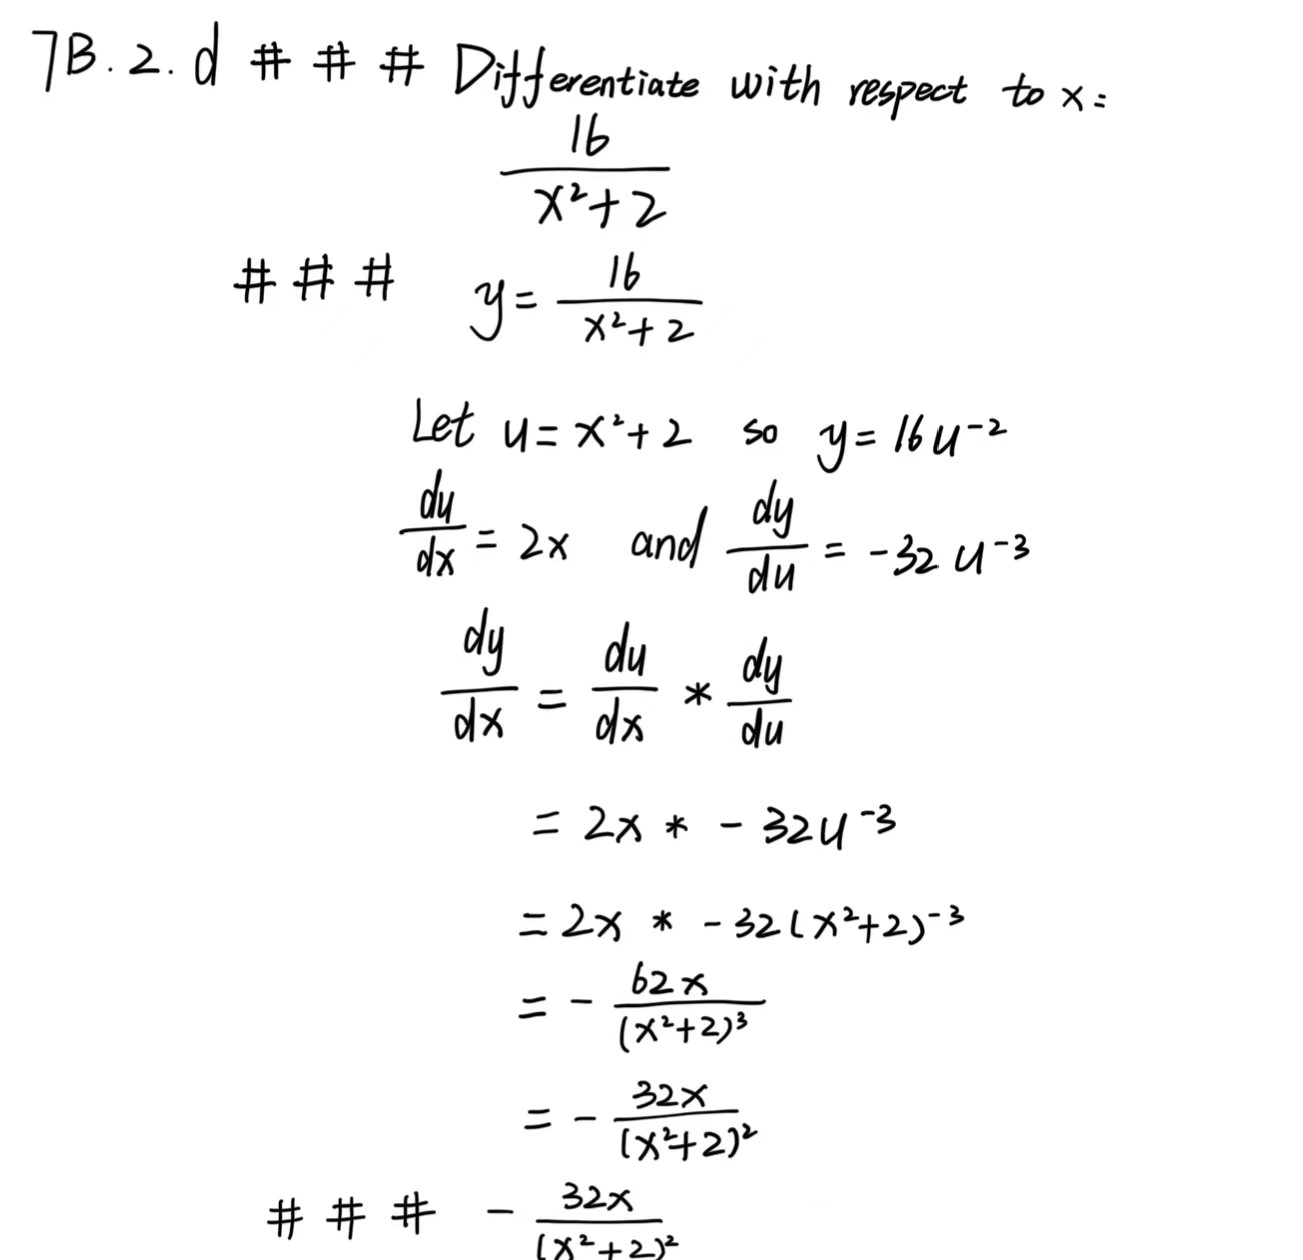 7B.2.d # # # Differentiate with respect to x:
\frac{16}{x^2+2}
# # # y = \frac{16}{x^2+2}
Let u = x^2+2 so y = 16u^{-2}
\frac{du}{dx} = 2x and \frac{dy}{du} = -32u^{-3}
\frac{dy}{dx} = \frac{du}{dx} * \frac{dy}{du}
= 2x * -32u^{-3}
= 2x * -32(x^2+2)^{-3}
= -\frac{62x}{(x^2+2)^3}
= -\frac{32x}{(x^2+2)^2}
# # # -\frac{32x}{(x^2+2)^2}